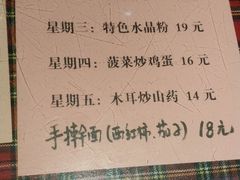 星期三：特色水晶粉 19 元
星期四：菠菜炒鸡蛋 16 元
星期五：木耳炒山药 14 元
手擀面(西红柿.茄子) 18元